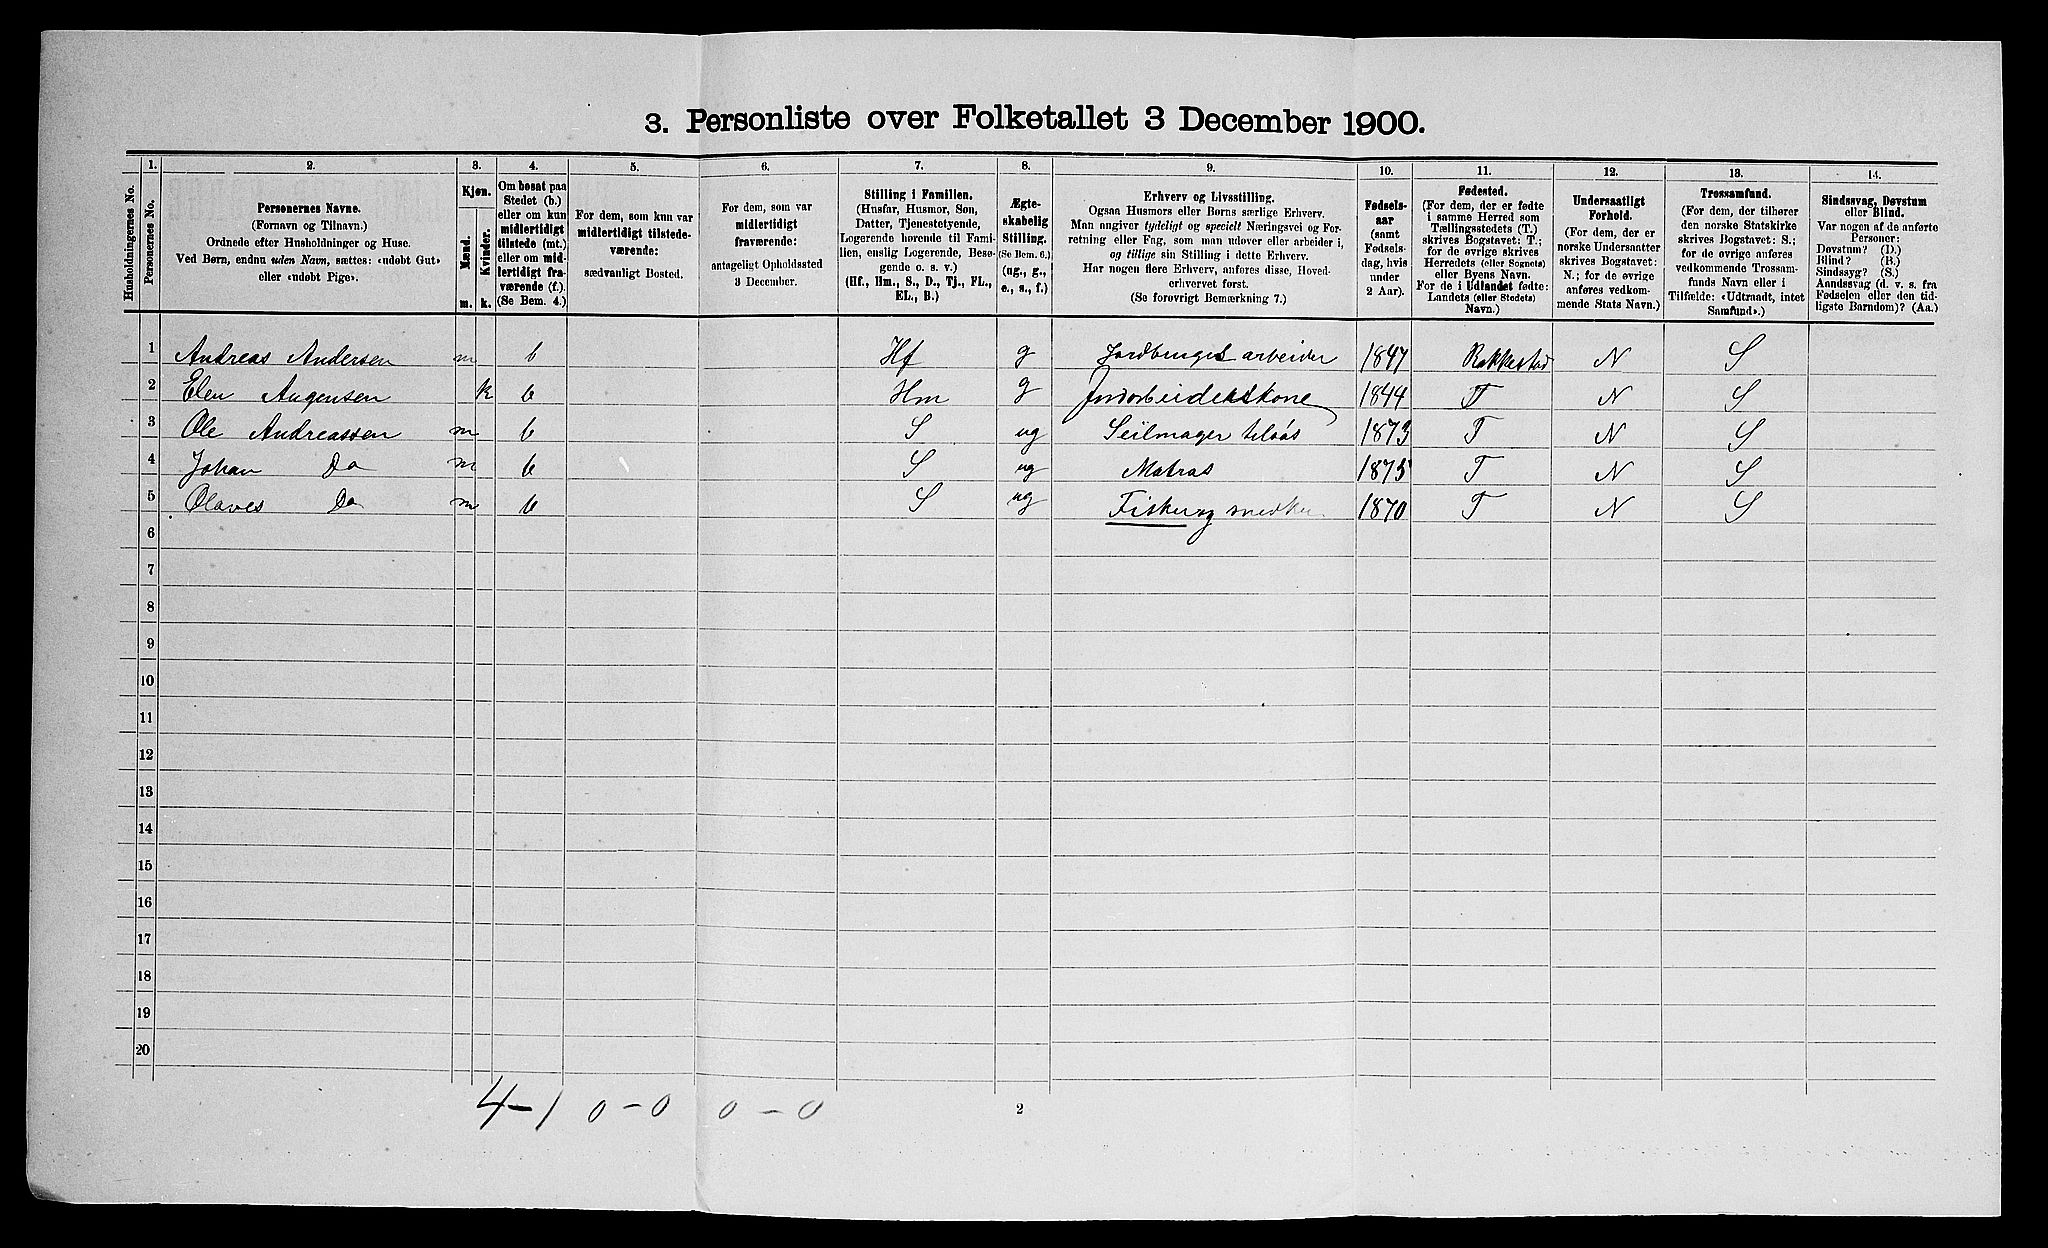 3. Personliste over Folketallet 3 December 1900.
1. 2. 3. 4. 5. 6. 7. 8. 9. 10. 11. 12. 13. 14.
Husholdningernes No.
Personernes No.
Personernes Navne.
(Fornavn og Tilnavn.)
Ordnede efter Husholdninger og Huse.
Ved Børn, endnu uden Navn, sættes: «udøbt Gut»
eller «udøbt Pige».
Kjøn.
Mænd.
Kvinder.
m. k.
Om bosat paa
Stedet (b.)
eller om kun
midlertidigt
tilstede (mt.)
eller om mid-
lertidigt fra-
værende (f.)
(Se Bem. 4.)
For dem, som kun var
midlertidigt tilstede-
værende:
sædvanligt Bosted.
For dem, som var
midlertidigt
fraværende:
antageligt Opholdssted
3 December.
Stilling i Familien.
(Husfar, Husmor, Søn,
Datter, Tjenestetyende,
Logerende hørende til Fami-
lien, enslig Logerende, Besø-
gende o. s. v.)
(Hf., Hm., S., D., Tj., FL.,
EL., B.)
Ægte-
skabelig
Stilling.
(Se Bem. 6.)
(ug., g.,
e., s., f.)
Erhverv og Livsstilling.
Ogsaa Husmors eller Børns særlige Erhverv.
Man angiver tydeligt og specielt Næringsvei og For-
retning eller Fag, som man udover eller arbeider i,
og tillige sin Stilling i dette Erhverv.
Har nogen flere Erhverv, anføres disse, Hoved-
erhvervet først.
(Se forøvrigt Bemærkning 7.)
Fødsels-
aar
(samt
Fødsels-
dag, hvis
under
2 Aar).
Fødested.
(For dem, der er fødte
i samme Herred som
Tællingsstedets (T.)
skrives Bogstavet: T.;
for de øvrige skrives
Herredets (eller Sognets)
eller Byens Navn.
For de i Udlandet fødte:
Landets (eller Stedets)
Navn.)
Undersaatligt
Forhold.
(For dem, der er
norske Undersaatter
skrives Bogstavet:
N.; for de øvrige
anføres vedkom-
mende Stats Navn.)
Trossamfund.
(For dem, der tilhører
den norske Statskirke
skrives Bogstavet: S.;
for de øvrige anføres
vedkommende Trossam-
funds Navn eller i
Tilfælde: «Udtraadt, intet
Samfund».)
Sindssvag, Døvstum
eller Blind.
Var nogen af de anførte
Personer:
Døvstum? (D.)
Blind? (B.)
Sindssyg? (S.)
Aandssvag (d. v. s. fra
Fødselen eller den tid-
ligste Barndom)? (Aa.)
1 Andreas Andersen m b Hf g Jordbruges arbeider 1847 Rakkestad N S
2 Elen Augensen k b Hm g Jordarbeiderskone 1844 T N S
3 Ole Andreassen m b S ug Seilmager 1873 T N S
4 Johan Do m b S ug Matros 1875 T N S
5 Olaves Do m b S ug Fisker og 1870 T N S
6
7
8
9
10
11
12
13
14
15
16
17
18
19
20
4-1 0-0 0-0
2